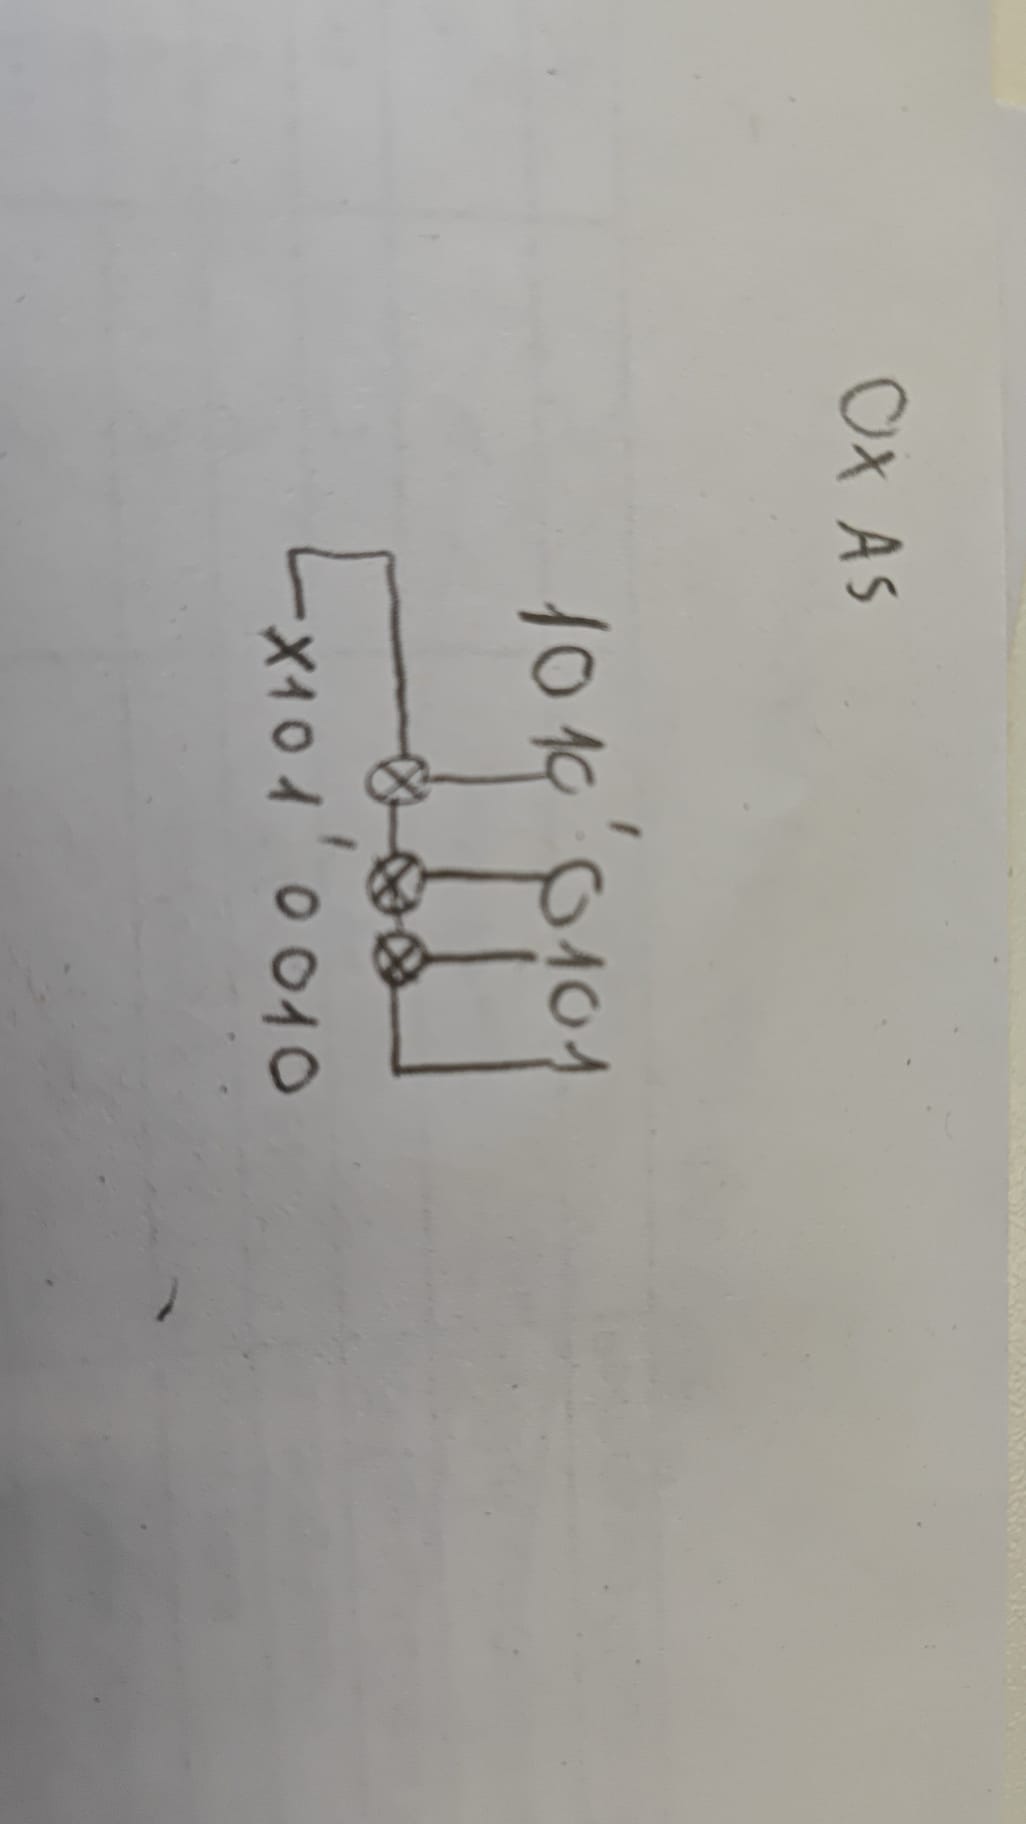 0x A5
1010'0101
X101'0010